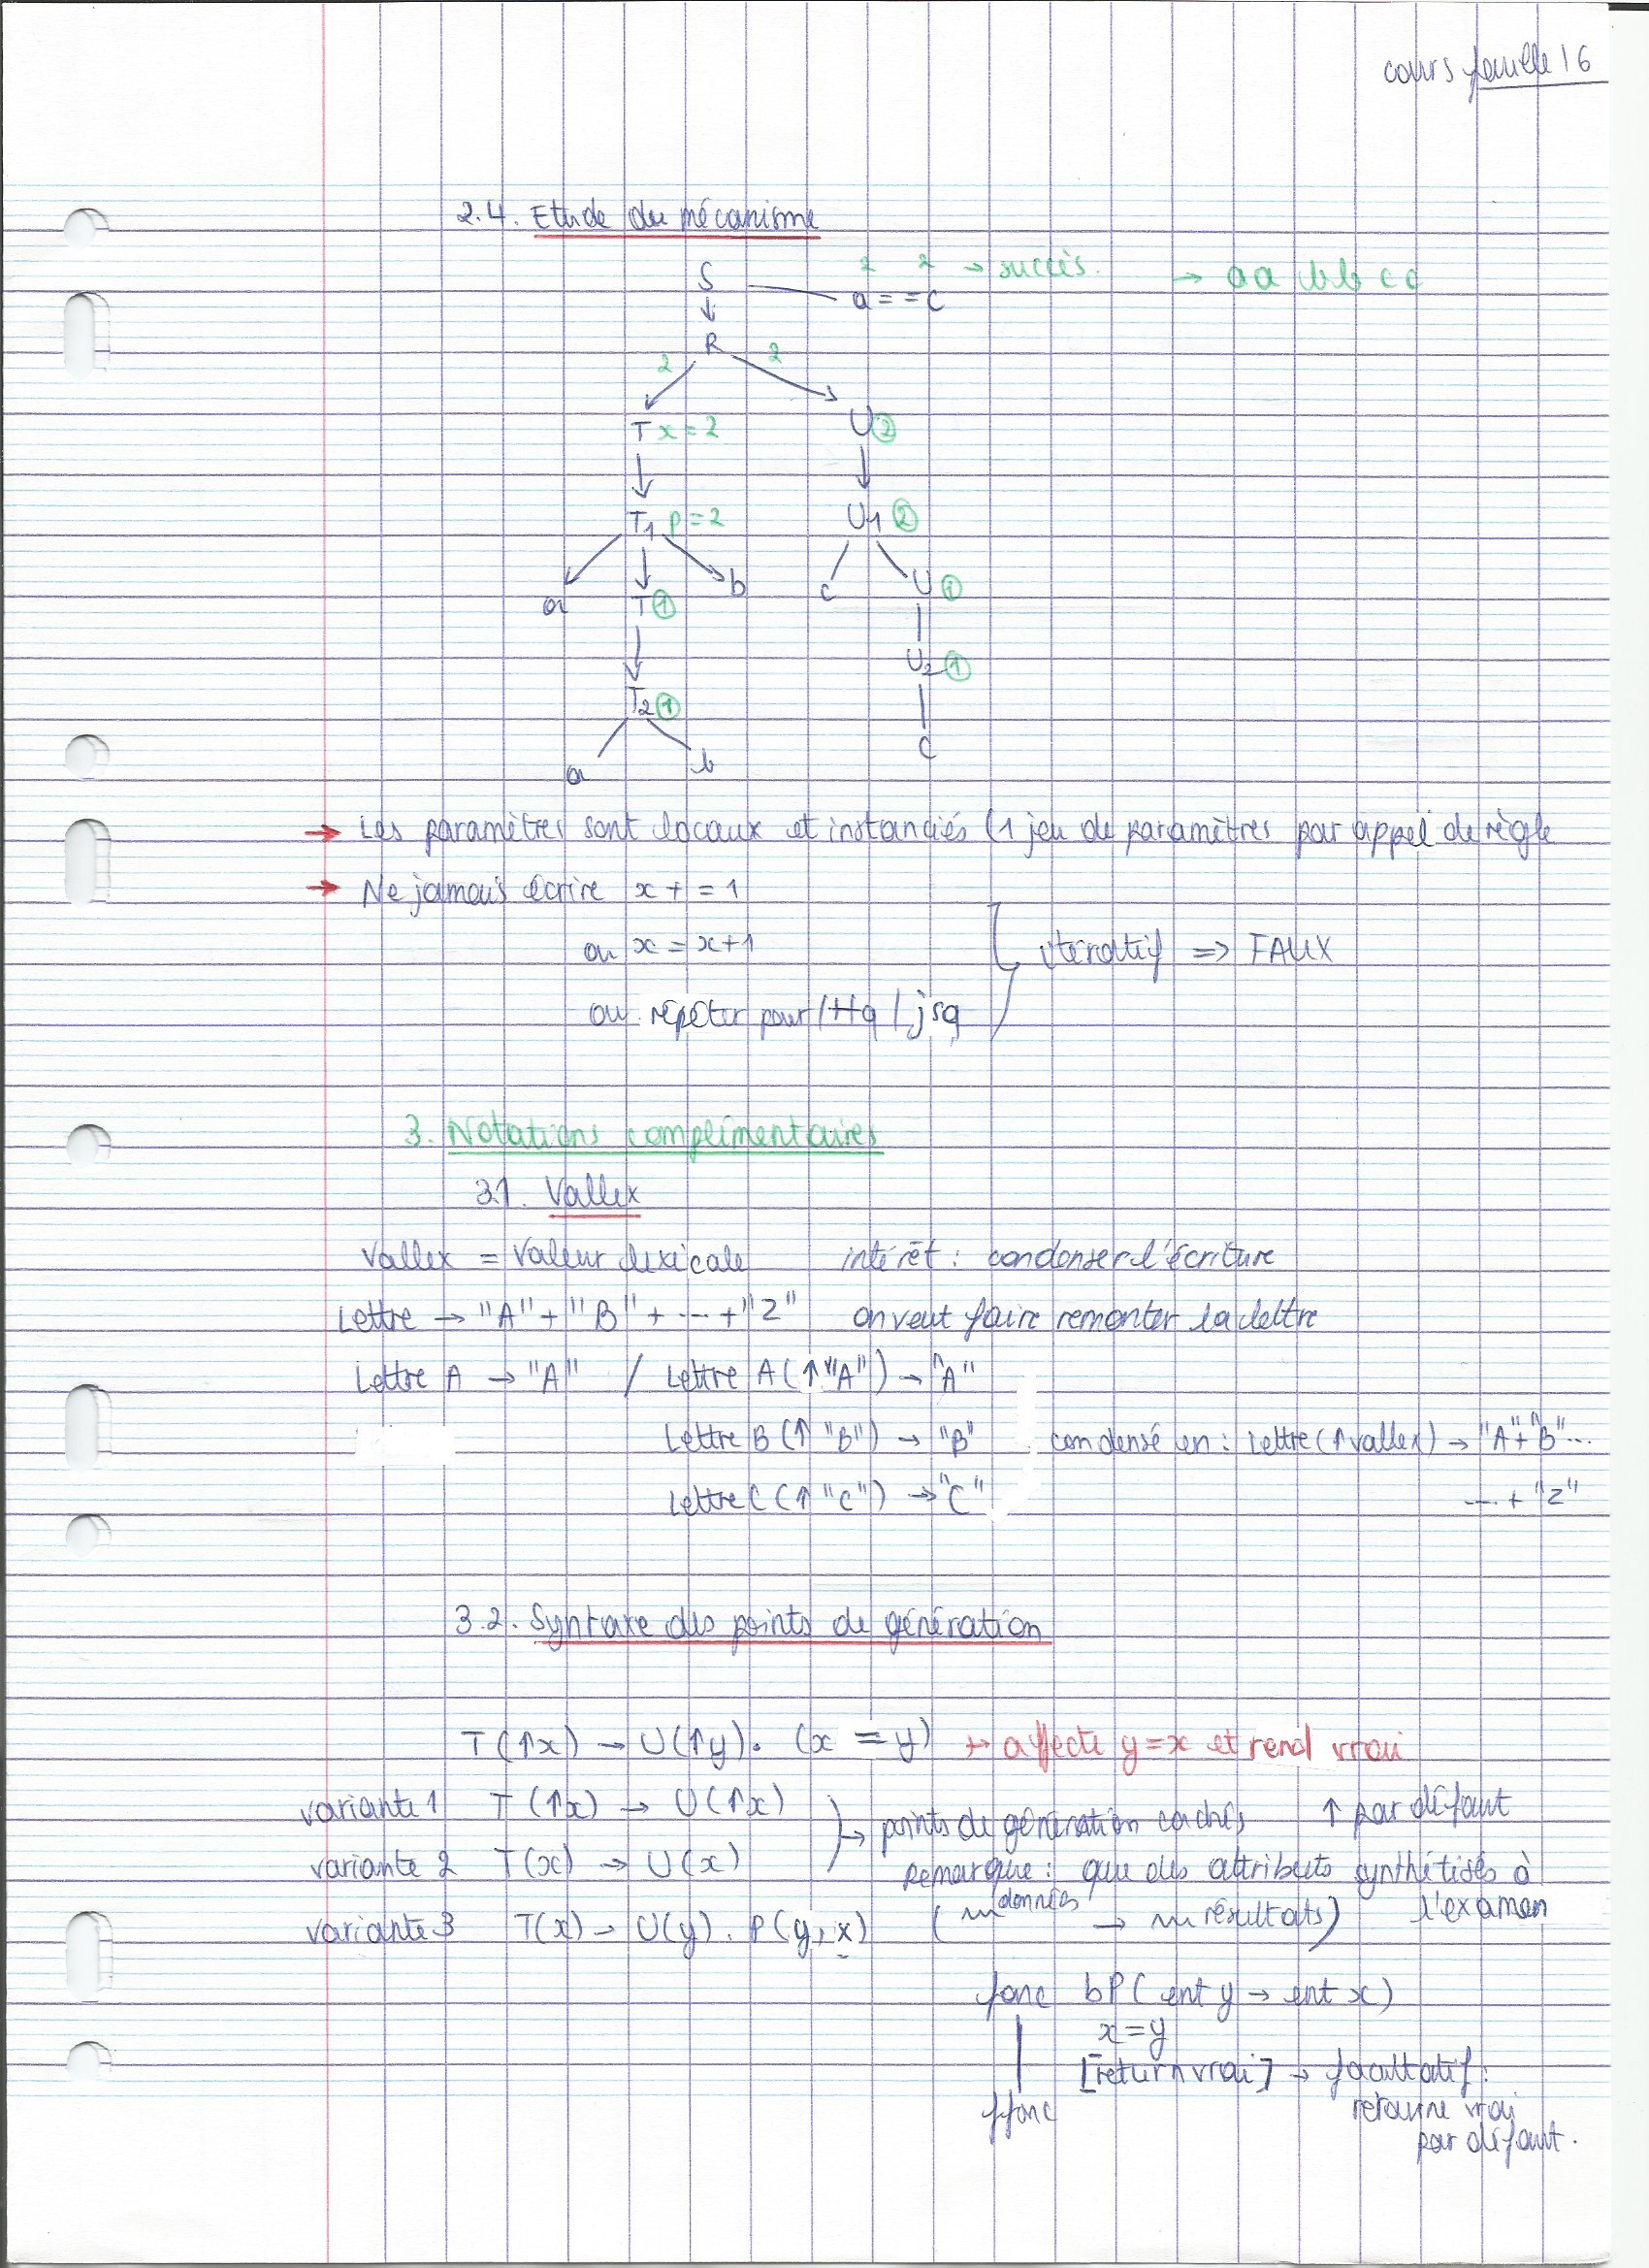 cours feuille 16
2.4. Etude du mécanisme
S 2 2 → succès. → aa bb cc
a = = c
R
2 2
T x = 2 U 2
T1 p = 2 U1 2
a T 1 b c U 1
U2 1
T2 1
a b c
→ Les paramètres sont locaux et instanciés (1 jeu de paramètres par appel de règle
→ Ne jamais écrire x + = 1
ou x = x+1 itératif => FAUX
ou répéter pour / ttq / jsq
3. Notations complimentaires
3.1. Vallex
Vallex = Valeur lexicale intérêt : condenser l'écriture
Lettre → "A" + "B" + ... + "Z" on veut faire remonter la lettre
Lettre A → "A" / Lettre A (↑ "A") → "A"
Lettre B (↑ "B") → "B" condensé en : Lettre (↑ vallex) → "A" + "B" ...
Lettre C (↑ "C") → "C" ... + "Z"
3.2. Syntaxe des points de génération
T (↑x) → U(↑y). (x = y) → affecte y = x et rend vrai
variante 1 T (↑x) → U (↑x) → points de génération cachés ↑ par défaut
variante 2 T(x) → U(x) Remarque : que des attributs synthétisés à l'examen
variante 3 T(x) → U(y). P(y, x) (m données → m résultats)
fonc bP (ent y → ent x)
x = y
[return vrai] → facultatif :
ffonc retourne vrai
par défaut.